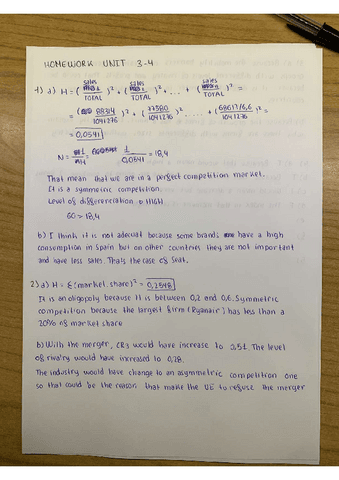 HOMEWORK UNIT 3-4
1) a) H = (sales / TOTAL)² + (sales / TOTAL)² + ... + (sales / TOTAL)² =
= (88314 / 1041276)² + (77380 / 1041276)² ... + (68617/6,6 / 1041276)² =
= 0,0541
N = 1/H = 1 / 0,0541 = 18,4
That mean that we are in a perfect competition market.
It is a symmetric competition.
Level of differenciation → HIGH
GO > 18,4
b) I think it is not adecuat because some brands have a high
consumption in Spain but on other countries they are not important
and have less sales. Thats the case of Seat.
2) a) H = Σ(market share)² = 0,2548
It is an oligopoly because it is between 0,2 and 0,6. Symmetric
competition because the largest firm (Ryanair) has less than a
20% of market share
b) With the merger, CR3 would have increase to 0,51. The level
of rivalry would have increased to 0,28.
The industry would have change to an asymmetric competition one
so that could be the reason that make the UE to refuse the merger